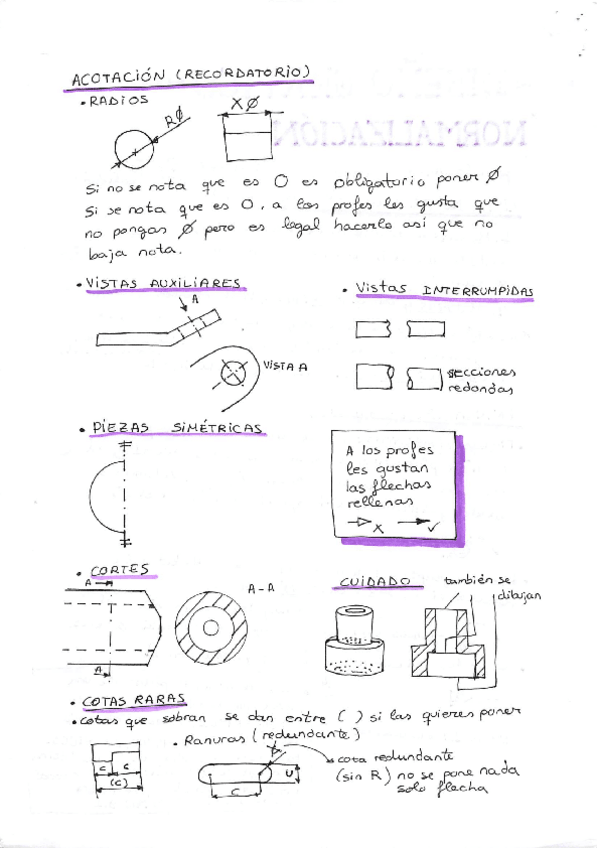 ACOTACIÓN (RECORDATORIO)
• RADIOS
RØ
XØ
Si no se nota que es O es obligatorio poner Ø
Si se nota que es O, a los profes les gusta que
no pongas Ø pero es legal hacerlo así que no
baja nota.
• VISTAS AUXILIARES
A
VISTA A
• Vistas INTERRUMPIDAS
secciones
redondas
• PIEZAS SIMÉTRICAS
A los profes
les gustan
las flechas
rellenas
x ✓
• CORTES
A
A
A-A
CUIDADO
también se
dibujan
• COTAS RARAS
• cotas que sobran se dan entre ( ) si las quieres poner
• Ranuras (redundante)
c c
(c)
c
U
cota redundante
(sin R) no se pone nada
solo flecha
NORMALIZACIÓN